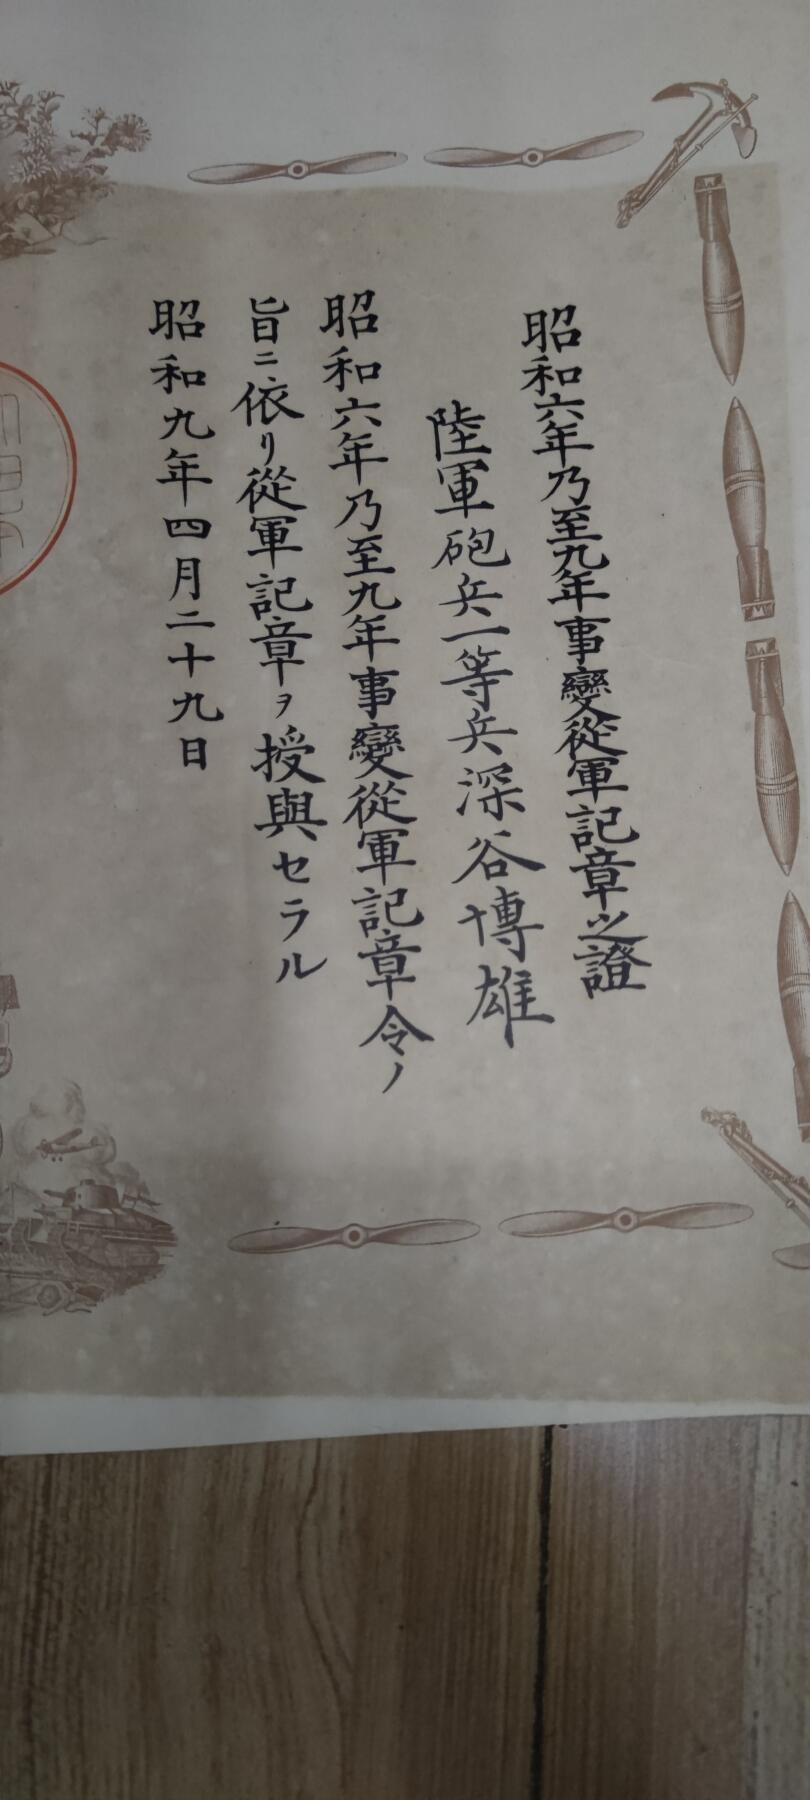 昭和六年乃至九年事變從軍記章之證
陸軍砲兵一等兵深谷博雄
昭和六年乃至九年事變從軍記章令ノ
旨ニ依リ從軍記章ヲ授與セラル
昭和九年四月二十九日